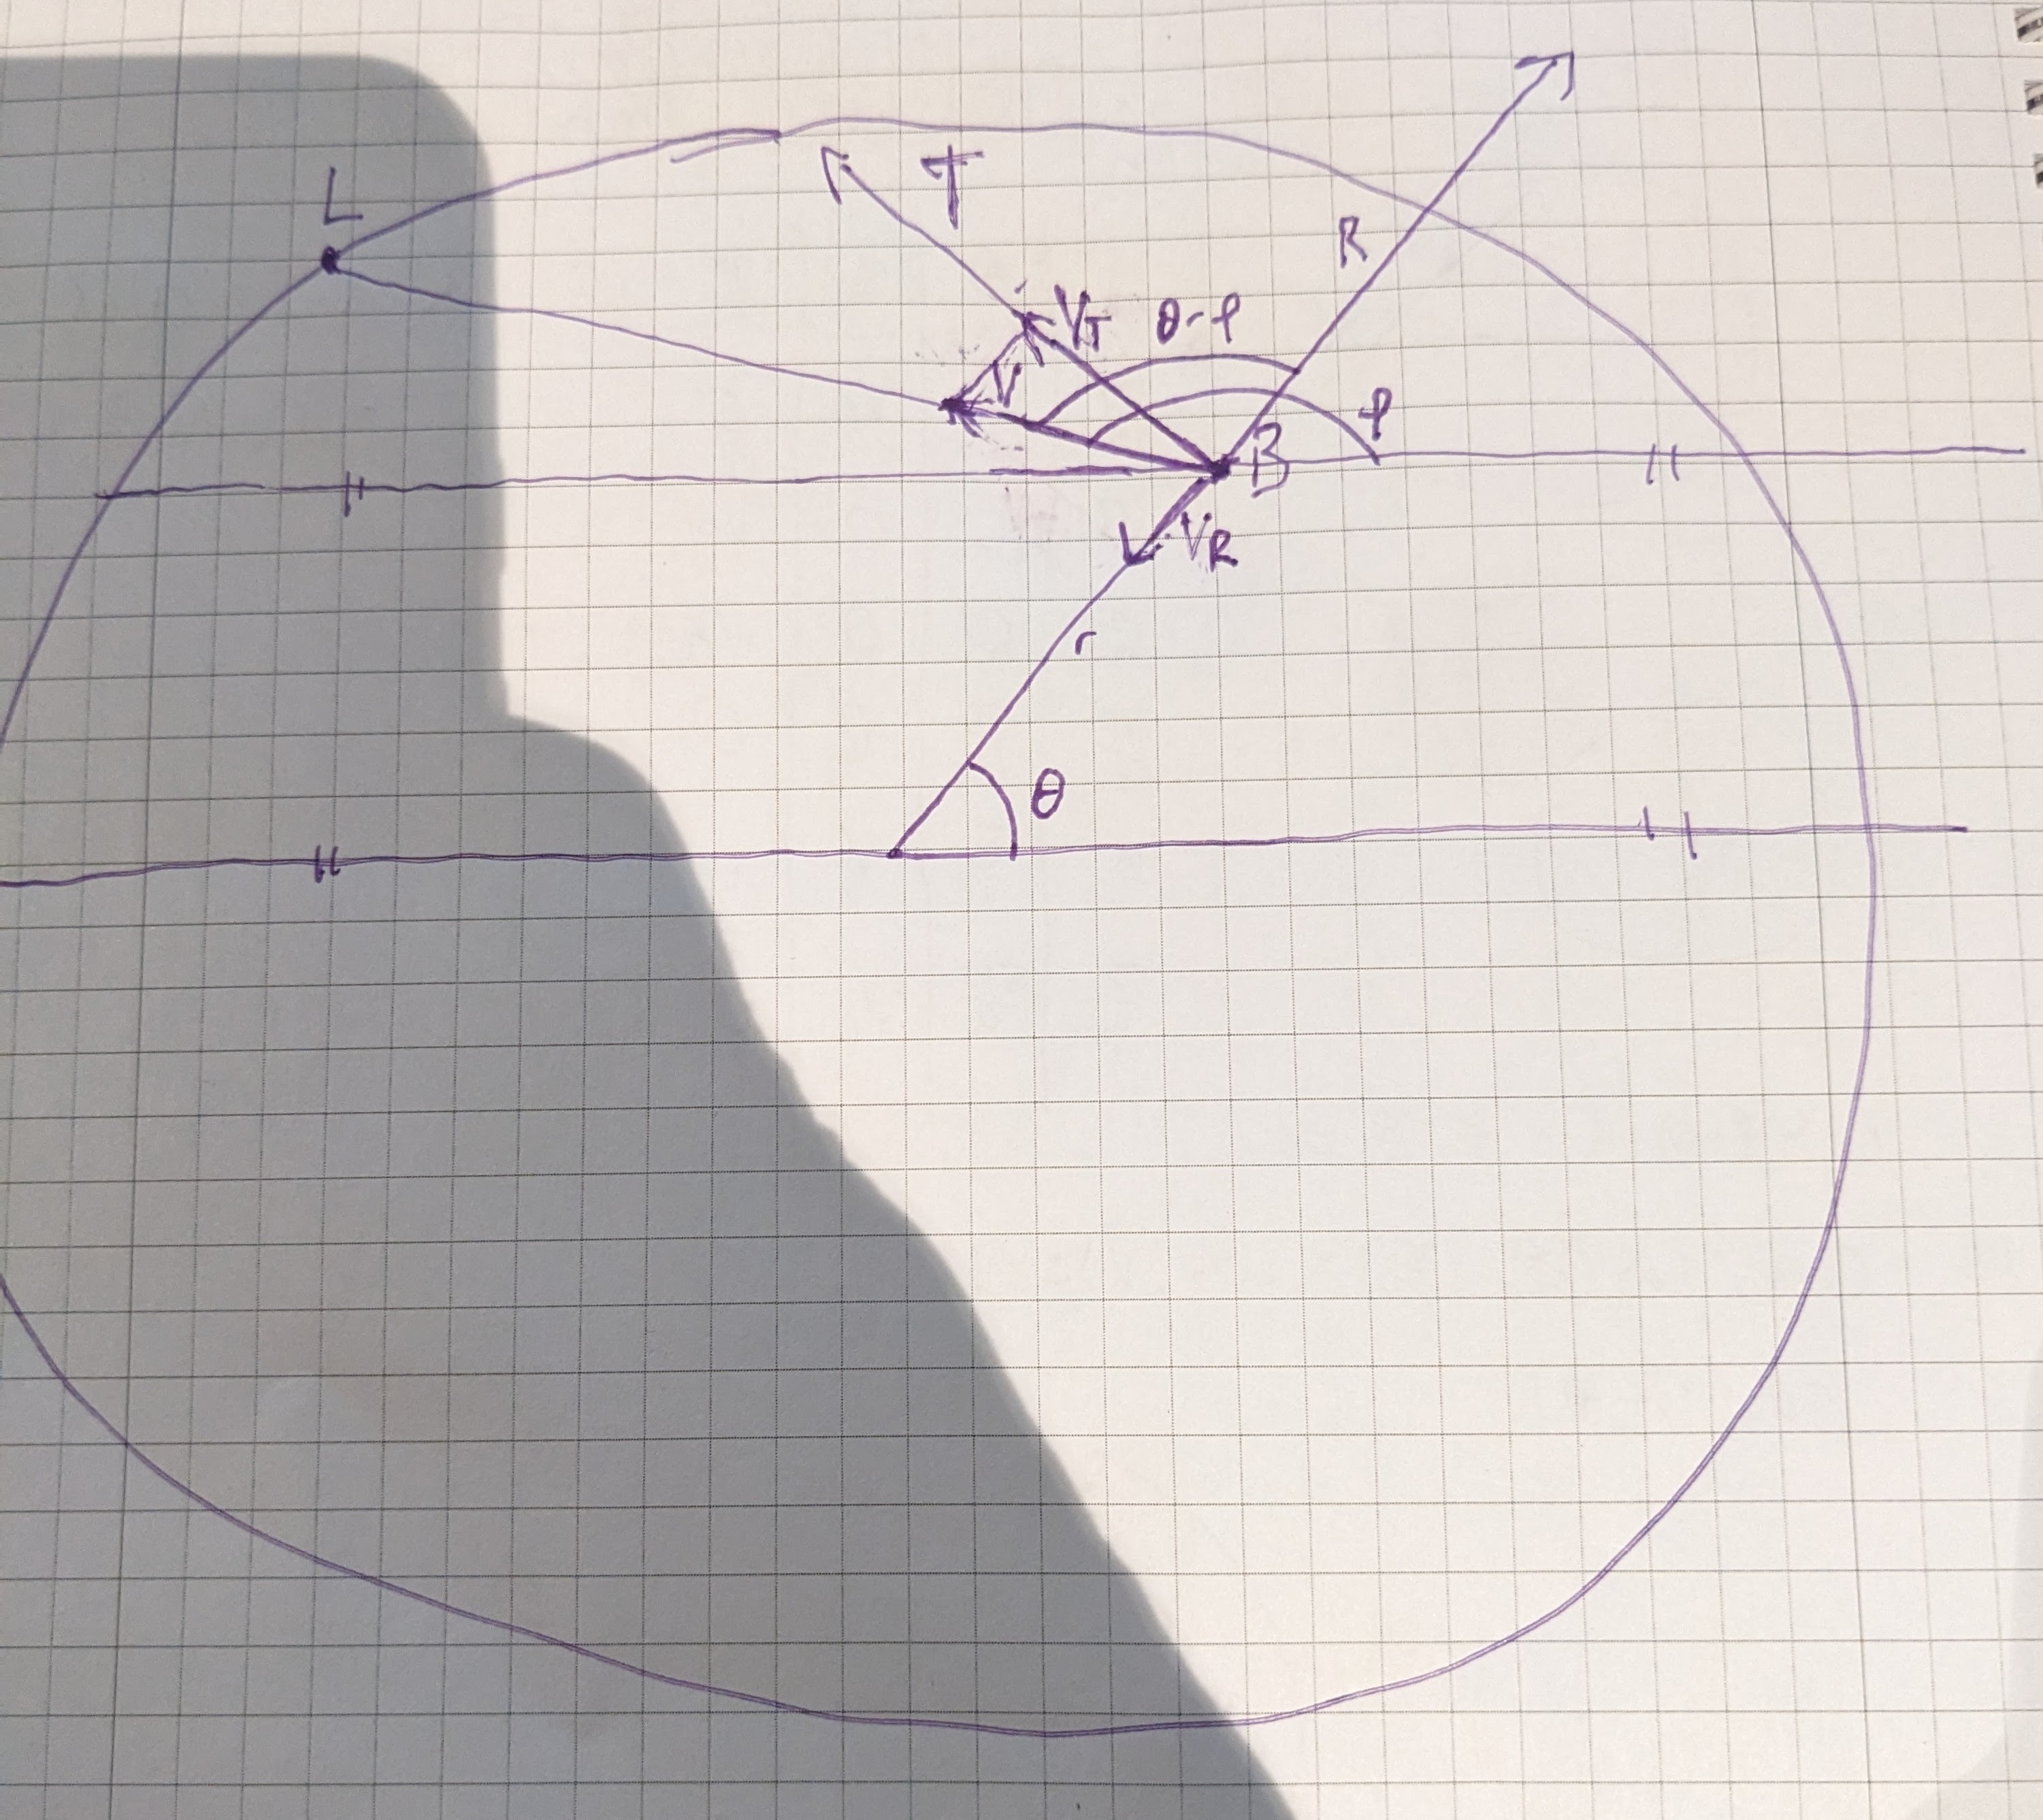 L
T
R
V_T
θ-φ
V
φ
B
V_R
r
θ